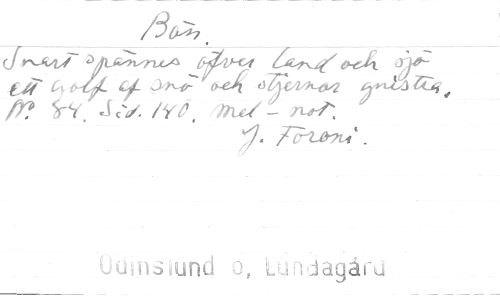 Bön.
Snart spännes öfver land och sjö
ett golf af snö och stjernor gnistra.
Nr. 84. Sid. 140. mel - not.
J. Foroni.
Odinslund o, Lundagård